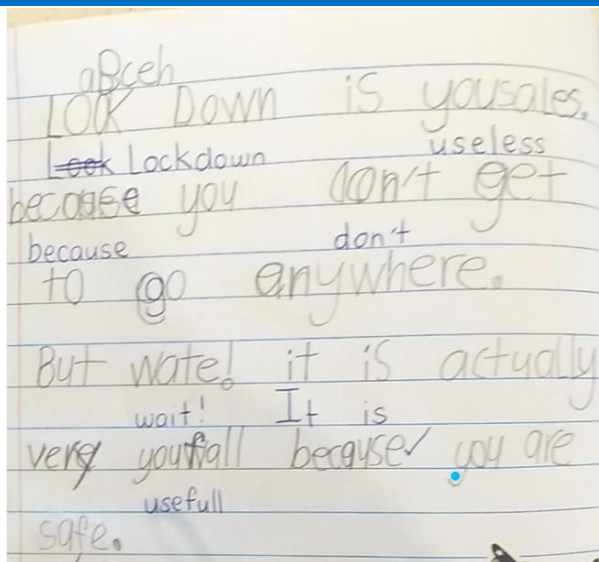 aBceh
LOCK DOWN is yousales.
Look Lockdown useless
because you don't get
because don't
to go anywhere.
But wate! it is actually
wait! It is
very youfall because you are
usefull
safe.